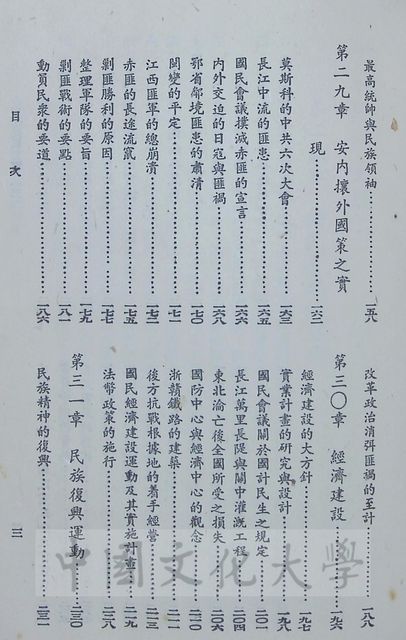 最高統帥與民族領袖……一五八
第二九章 安內攘外國策之實
現……一六二
莫斯科的中共六次大會……一六三
長江中流的匪患……一六五
國民會議撲滅赤匪的宣言……一六六
內外交迫的日寇與匪禍……一六八
鄂省鄰境匪患的肅清……一七〇
閩變的平定……一七一
江西匪軍的總崩潰……一七二
赤匪的長途流竄……一七五
剿匪勝利的原因……一七七
整理軍隊的要旨……一七九
剿匪戰術的要點……一八一
動員民衆的要道……一八六
改革政治消弭匪禍的至計……一八八
第三〇章 經濟建設……一九六
經濟建設的大方針……一九七
實業計畫的研究與設計……一九八
國民會議關於國計民生之規定……二〇一
長江萬里長隄與關中灌漑工程……二〇四
東北淪亡後全國所受之損失……二〇六
國防中心與經濟中心的觀念……二一〇
浙贛鐵路的建築……二一一
後方抗戰根據地的着手經營……二一三
國民經濟建設運動及其實施計畫……二一九
法幣政策的施行……二二八
第三一章 民族復興運動……二三〇
民族精神的復興……二三一
目次
三
中國文化大學